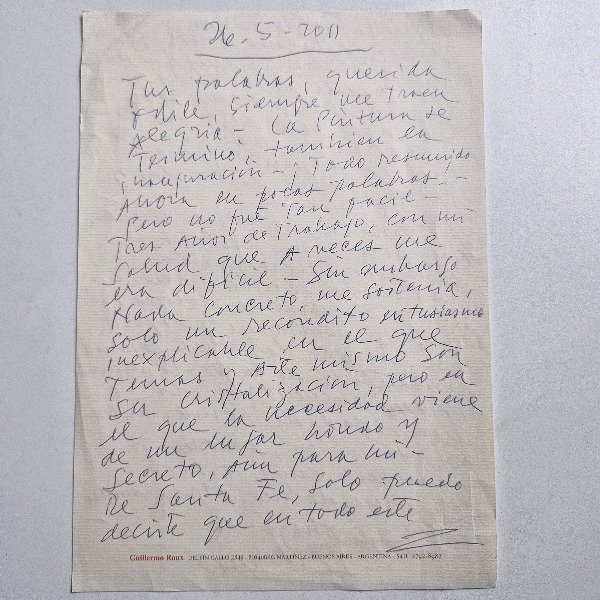 26-5-2011
Tus palabras, querida
siempre me traen
Alegria - La Pintura se
Terminó, también la
inauguración - ¡Todo resumido
Ahora en pocas palabras! -
Pero no fué tan facil -
Tres Años de Trabajo, con mi
Salud que A veces me
era difícil - Sin embargo
Nada Concreto, me sostenia,
Solo un recondito entusiasmo
inexplicable en el que
Temas y Arte mismo son
Su Cristalización, pero en
el que la necesidad viene
de un lugar hondo y
Secreto, Aún para mi -
De Santa Fe, Solo puedo
decirte que en todo este
Guillermo Roux DELFIN GALLO 2845 - MARTÍNEZ - BUENOS AIRES - ARGENTINA